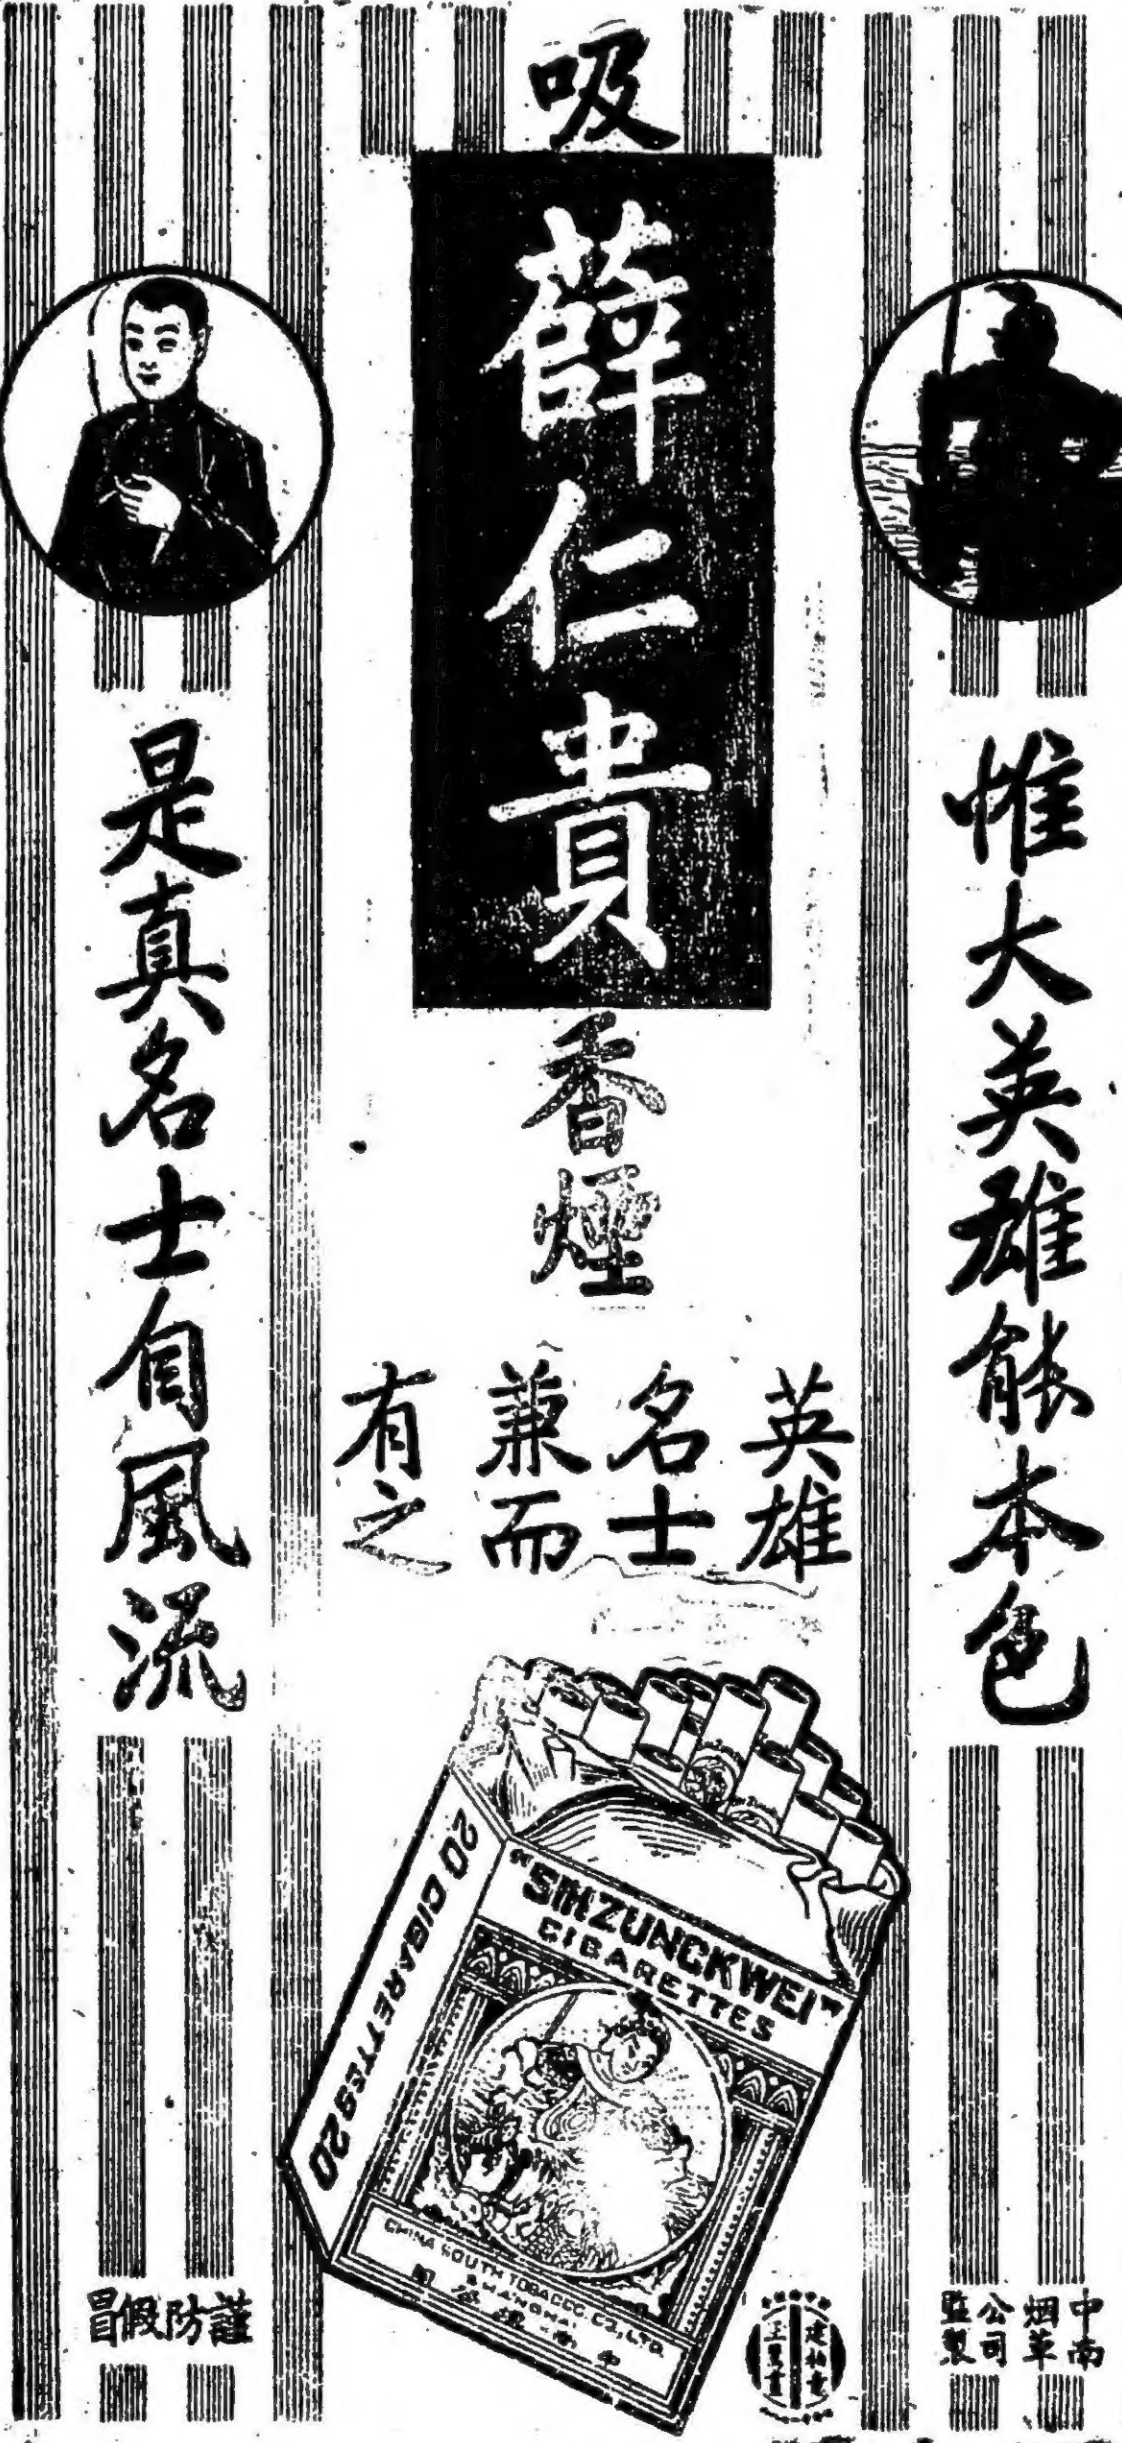 吸
薛仁貴
香煙
惟大英雄能本色
是真名士自風流
英雄
名士
兼而
有之
"SIHZUNGKWEI"
CIGARETTES
20 CIGARETTES 20
CHINA SOUTH TOBACCO CO, LTD.
SHANGHAI
中南
烟草
公司
監製
謹防假冒